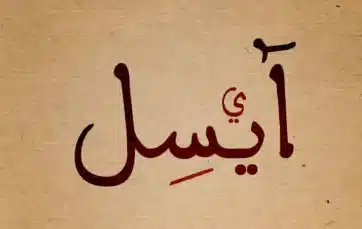 آيسِل